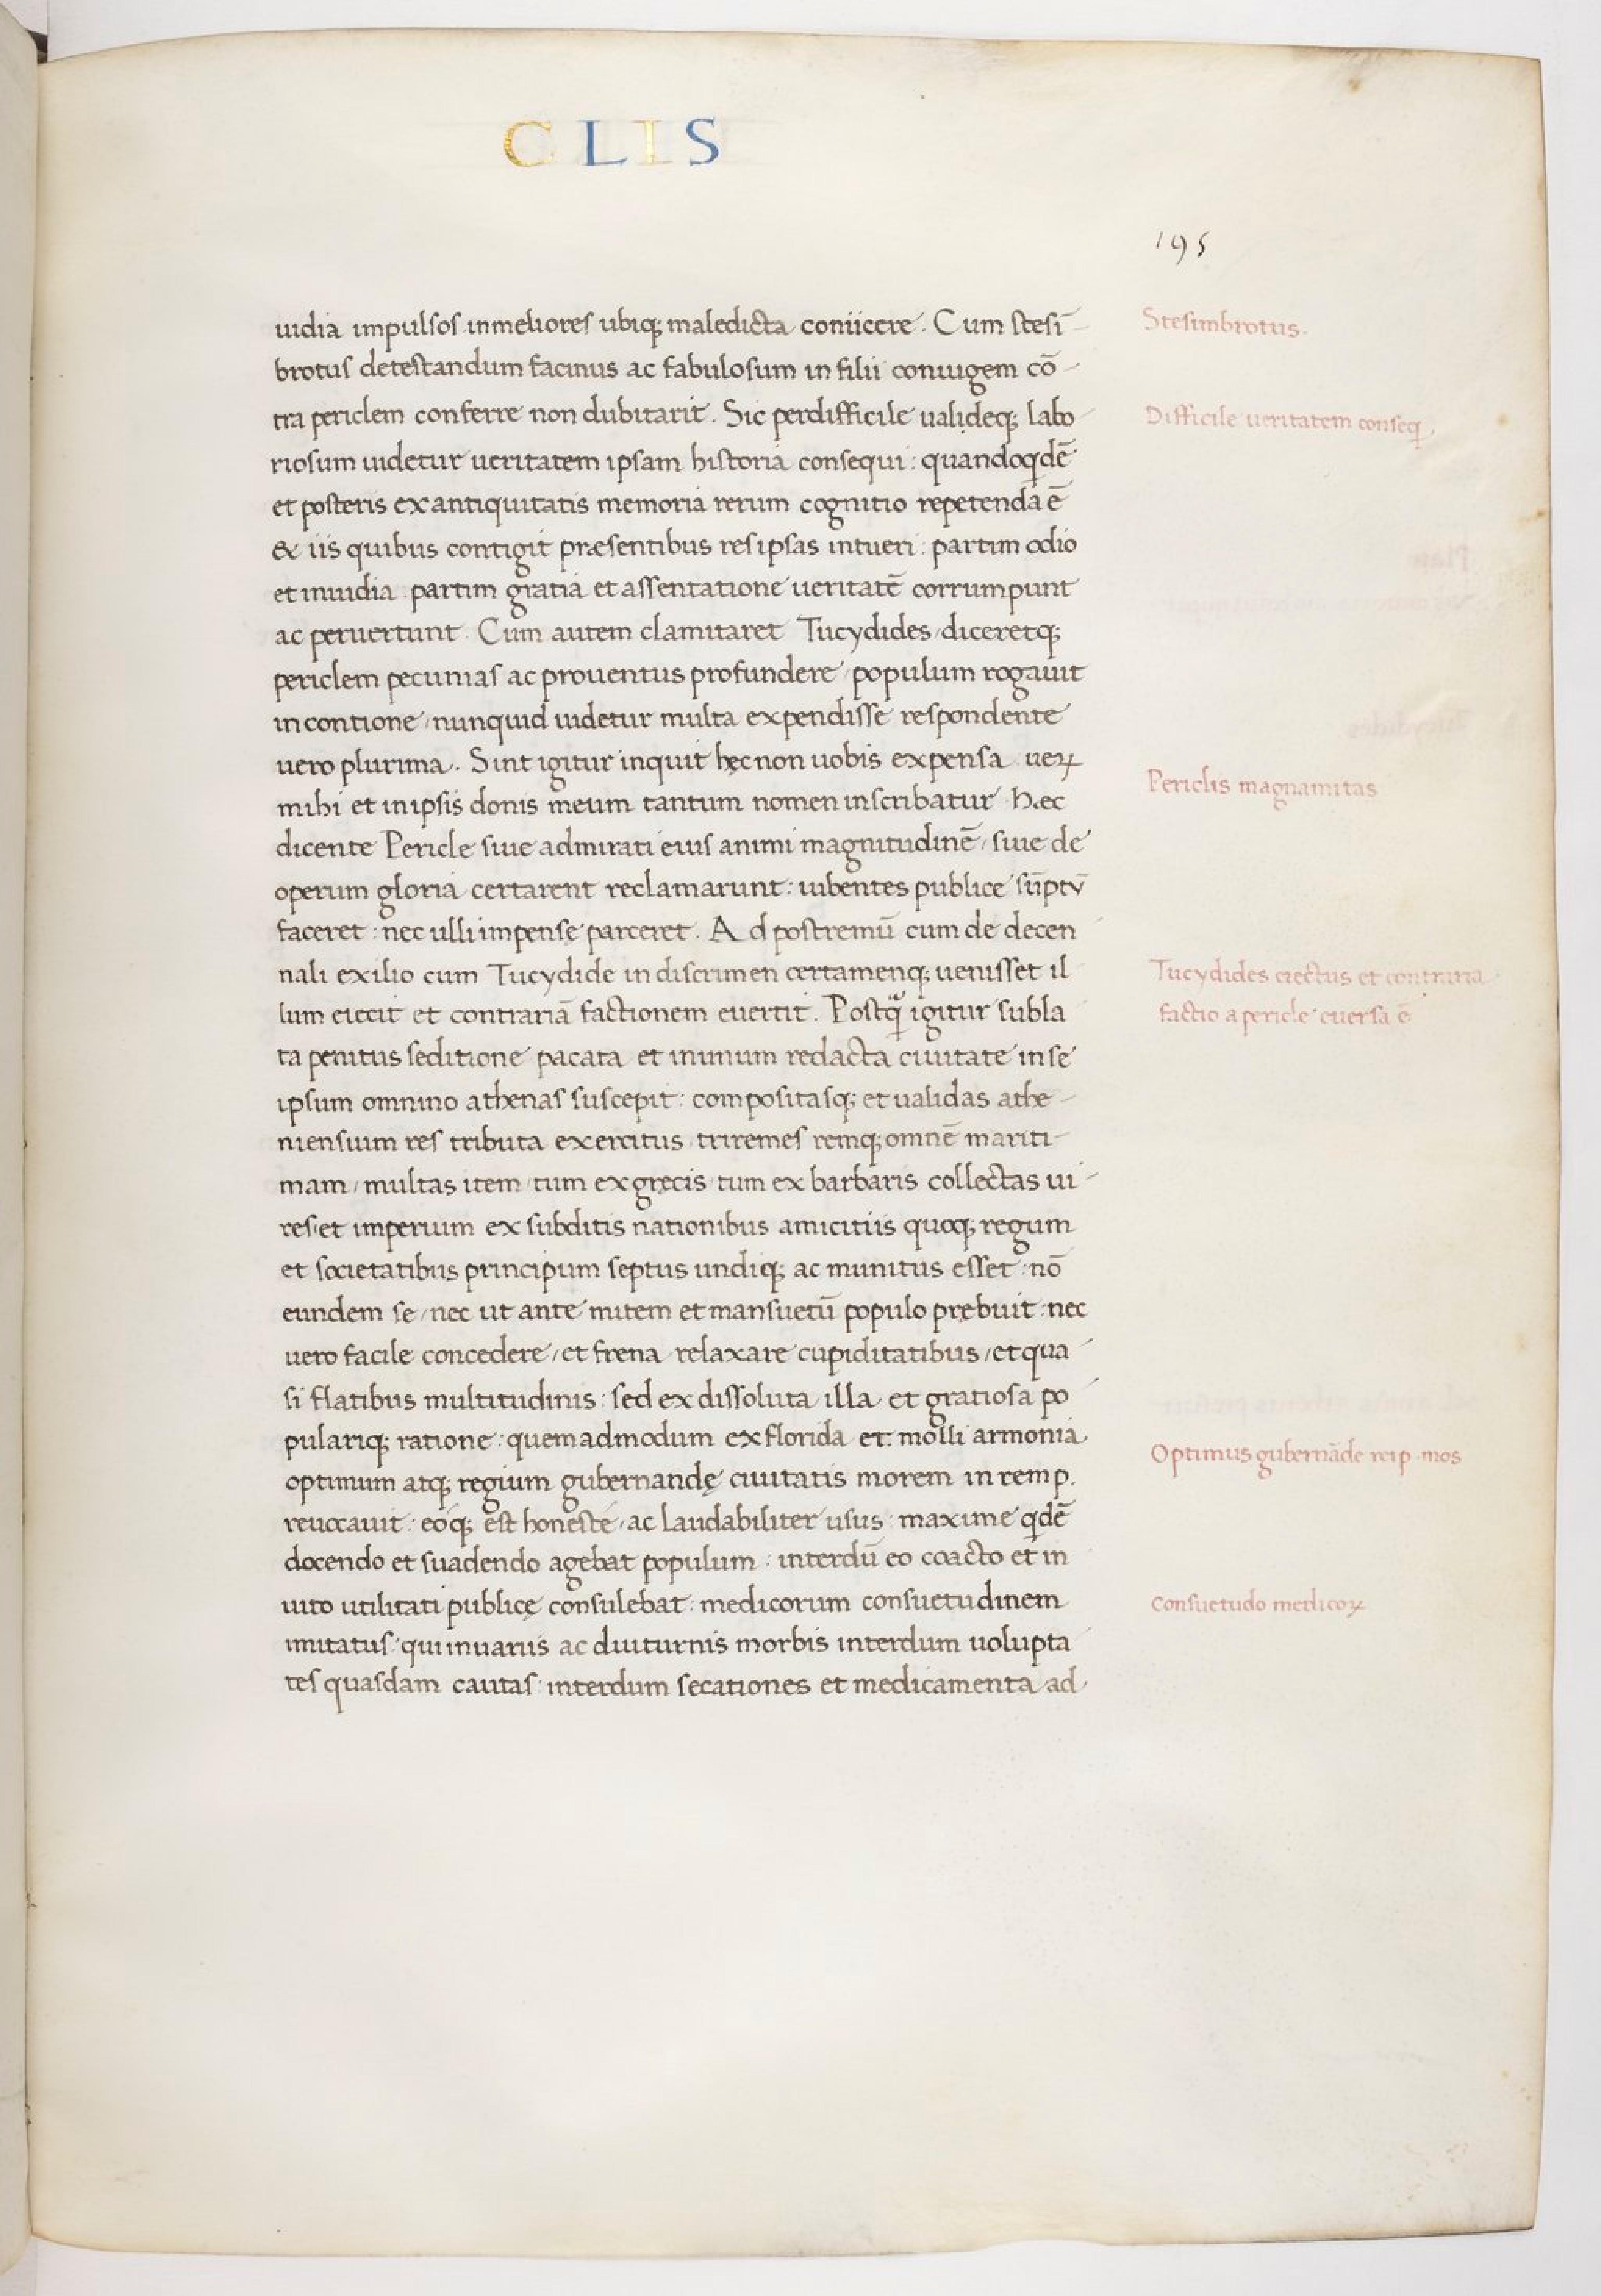 CLIS
195
uidia impulsos inmeliores ubiq; maledicta coniicere. Cum stesi
Stesimbrotus.
brotus detestandum facinus ac fabulosum in filii coniugem cō
tra periclem conferre non dubitarit. Sic perdifficile ualideq; labo
Difficile ueritatem conseq
riosum uidetur ueritatem ipsam historia consequi: quandoqdē
et posteris ex antiquitatis memoria rerum cognitio repetenda ē
& iis quibus contigit præsentibus res ipsas intueri: partim odio
et inuidia. partim gratia et assentatione ueritatē corrumpunt
ac peruertunt. Cum autem clamitaret Tucydides/diceretq;
periclem pecunias ac prouentus profundere/populum rogauit
in contione/nunquid uidetur multa expendisse respondente
uero plurima. Sint igitur inquit hęc non uobis expensa. ueꝝ
Periclis magnamitas
mihi et in ipsis donis meum tantum nomen inscribatur. hæc
dicente Pericle siue admirati eius animi magnitudinē/siue de
operum gloria certarent reclamarunt: iubentes publice sūptū
faceret: nec ulli impensę parceret. Ad postremū cum de decen
nali exilio cum Tucydide in discrimen certamenq; uenisset il
Tucydides eiectus et contraria
lum eiecit et contrariā factionem euertit. Postq̄ igitur subla
factio a pericle euersa ē
ta penitus seditione pacata et in unum redacta ciuitate in se
ipsum omnino athenas suscepit: compositasq; et ualidas athe
niensium res tributa exercitus triremes remq; omnē mariti
mam/multas item/tum ex gręcis tum ex barbaris collectas ui
res/et imperium ex subditis nationibus amicitiis quoq; regum
et societatibus principum septus undiq; ac munitus esset: nō
eundem se/nec ut ante mitem et mansuetū populo prębuit: nec
uero facile concedere/et frena relaxare cupiditatibus/et qua
si flatibus multitudinis: sed ex dissoluta illa et gratiosa po
pulariq; ratione: quemadmodum ex florida et molli armonia
Optimus gubernāde reip. mos
optimum atq; regium gubernandę ciuitatis morem in rem p.
reuocauit: eoq; est honeste/ac laudabiliter usus: maxime qdē
docendo et suadendo agebat populum: interdū eo coacto et in
uito utilitati publicę consulebat: medicorum consuetudinem
consuetudo medicoꝝ
imitatus: qui inuariis ac diuturnis morbis interdum uolupta
tes quasdam cautas: interdum secationes et medicamenta ad